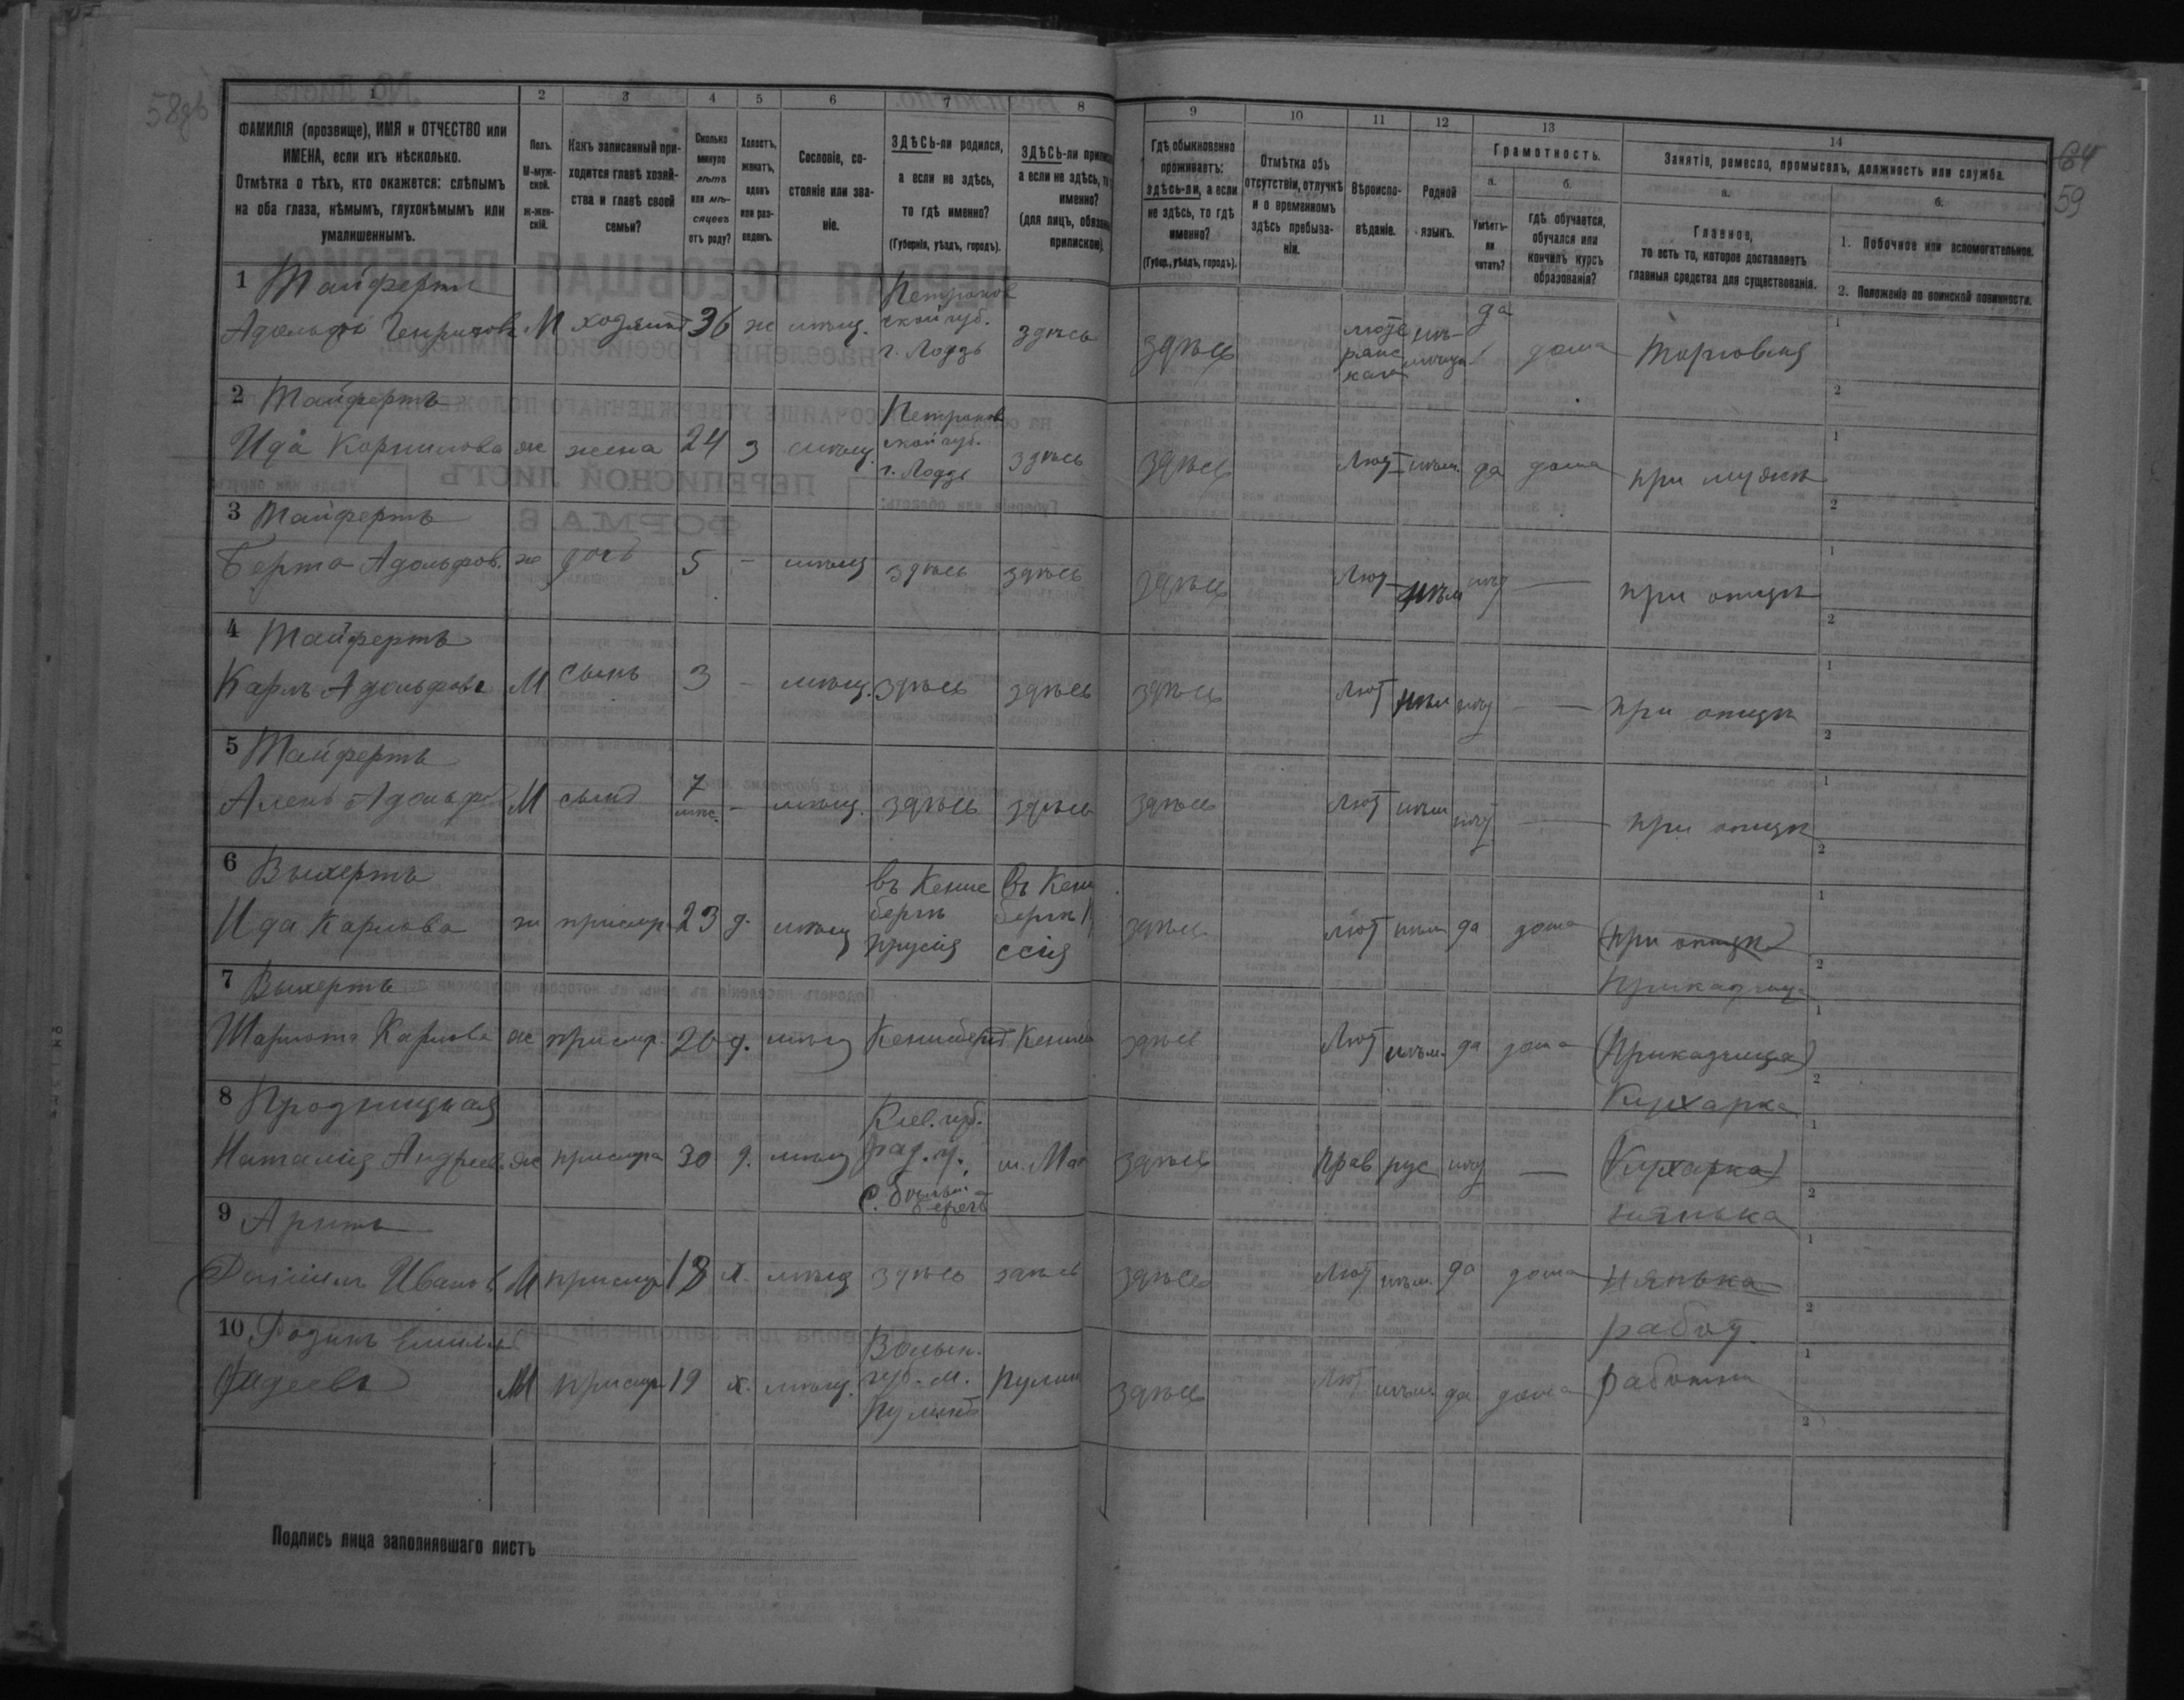 58об
64
59
1 2 3 4 5 6 7 8 9 10 11 12 13 14
ФАМИЛІЯ (прозвище), ИМЯ и ОТЧЕСТВО или
ИМЕНА, если ихъ нѣсколько.
Отмѣтка о тѣхъ, кто окажется: слѣпымъ
на оба глаза, нѣмымъ, глухонѣмымъ или
умалишеннымъ.
Полъ.
М-муж-
ской.
ж-жен-
скій.
Какъ записанный при-
ходится главѣ хозяй-
ства и главѣ своей
семьи?
Сколько
минуло
лѣтъ
или мѣ-
сяцевъ
отъ роду?
Холостъ,
женатъ,
вдовъ
или раз-
веденъ.
Сословіе, со-
стояніе или зва-
ніе.
ЗДѢСЬ-ли родился,
а если не здѣсь,
то гдѣ именно?
(Губернія, уѣздъ, городъ).
ЗДѢСЬ-ли припис
а если не здѣсь, то
именно?
(для лицъ, обязан
припискою).
Гдѣ обыкновенно
проживаетъ:
здѣсь-ли, а если
не здѣсь, то гдѣ
именно?
(Губер., уѣздъ, городъ).
Отмѣтка объ
отсутствіи, отлучкѣ
и о временномъ
здѣсь пребыва-
ніи.
Вѣроиспо-
вѣданіе.
Родной
языкъ.
Грамотность.
а.
Умѣетъ-
ли
читать?
б.
гдѣ обучается,
обучался или
кончилъ курсъ
образованія?
Занятіе, ремесло, промыселъ, должность или служба.
а.
Главное,
то есть то, которое доставляетъ
главныя средства для существованія.
б.
1. Побочное или вспомогательное.
2. Положеніе по воинской повинности.
1 Тайфертъ
Адольфъ Генриховъ М хозяинъ 36 ж мѣщ. Петроков
ской губ.
г. Лодзь здѣсь здѣсь люте
ранс
кая нѣ-
мецк. да дома Торговля
2 Тайфертъ
Ида Корнилова ж жена 24 з мѣщ. Петроков
ской губ.
г. Лодзь здѣсь здѣсь Лют нѣм. да дома при мужѣ
3 Тайфертъ
Берта Адольфов. ж дочь 5 - мѣщ здѣсь здѣсь здѣсь Лют нѣм нѣт — при отцѣ
4 Тайфертъ
Карлъ Адольфовъ М сынъ 3 - мѣщ. здѣсь здѣсь здѣсь Лют нѣм нѣт — при отцѣ
5 Тайфертъ
Адольф. М сынъ 7
мѣс. - мѣщ. здѣсь здѣсь здѣсь Лют нѣм нѣт — при отцѣ
6 Выхертъ
Ида Карлова ж прислуг. 23 д. мѣщ въ Кениг
бергѣ
прусія въ Кени
бергѣ П
ссія здѣсь Лют нѣм да дома (при отцѣ)
Приказчица
7 Выхертъ
Шарлота Карлова ж прислуг. 26 д. мѣщ Кенисбергъ Кениг здѣсь Лют нѣм. да дома (Приказчица)
Кухарка
8
Наталія Андреев. ж прислуга 30 д. мѣщ Кіев. губ.
рад. у.
с. м. Мал здѣсь прав рус нѣт — (Кухарка)
нянька
9
Иванов М прислуг. 18 х. мѣщ здѣсь здѣсь здѣсь Лют нѣм. да дома нянька
работ.
10
М прислуг 19 х. мѣщ. Волын.
губ. м.
Пулинъ Пулин здѣсь Лют нѣм. да дома работни
Подпись лица заполнявшаго листъ